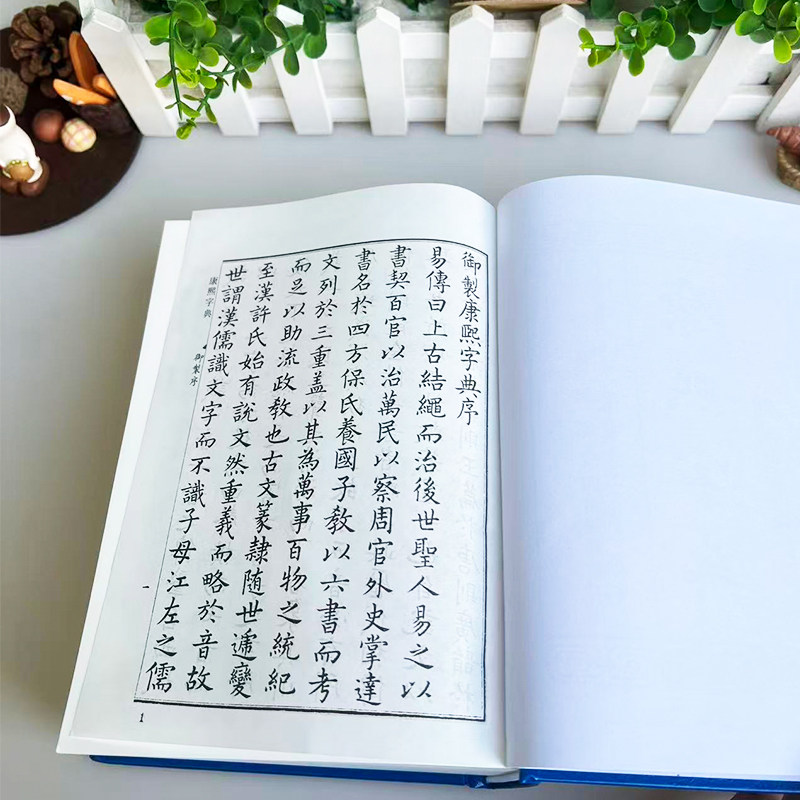 御製康熙字典序
易傳曰上古結繩而治後世聖人易之以
書契百官以治萬民以察周官外史掌達
書名於四方保氏養國子教以六書而考
文列於三重盖以其為萬事百物之統紀
而足以助流政教也古文篆隷随世遞變
至漢許氏始有說文然重義而略於音故
世謂漢儒識文字而不識子母江左之儒
康熙字典
御製序
一
1